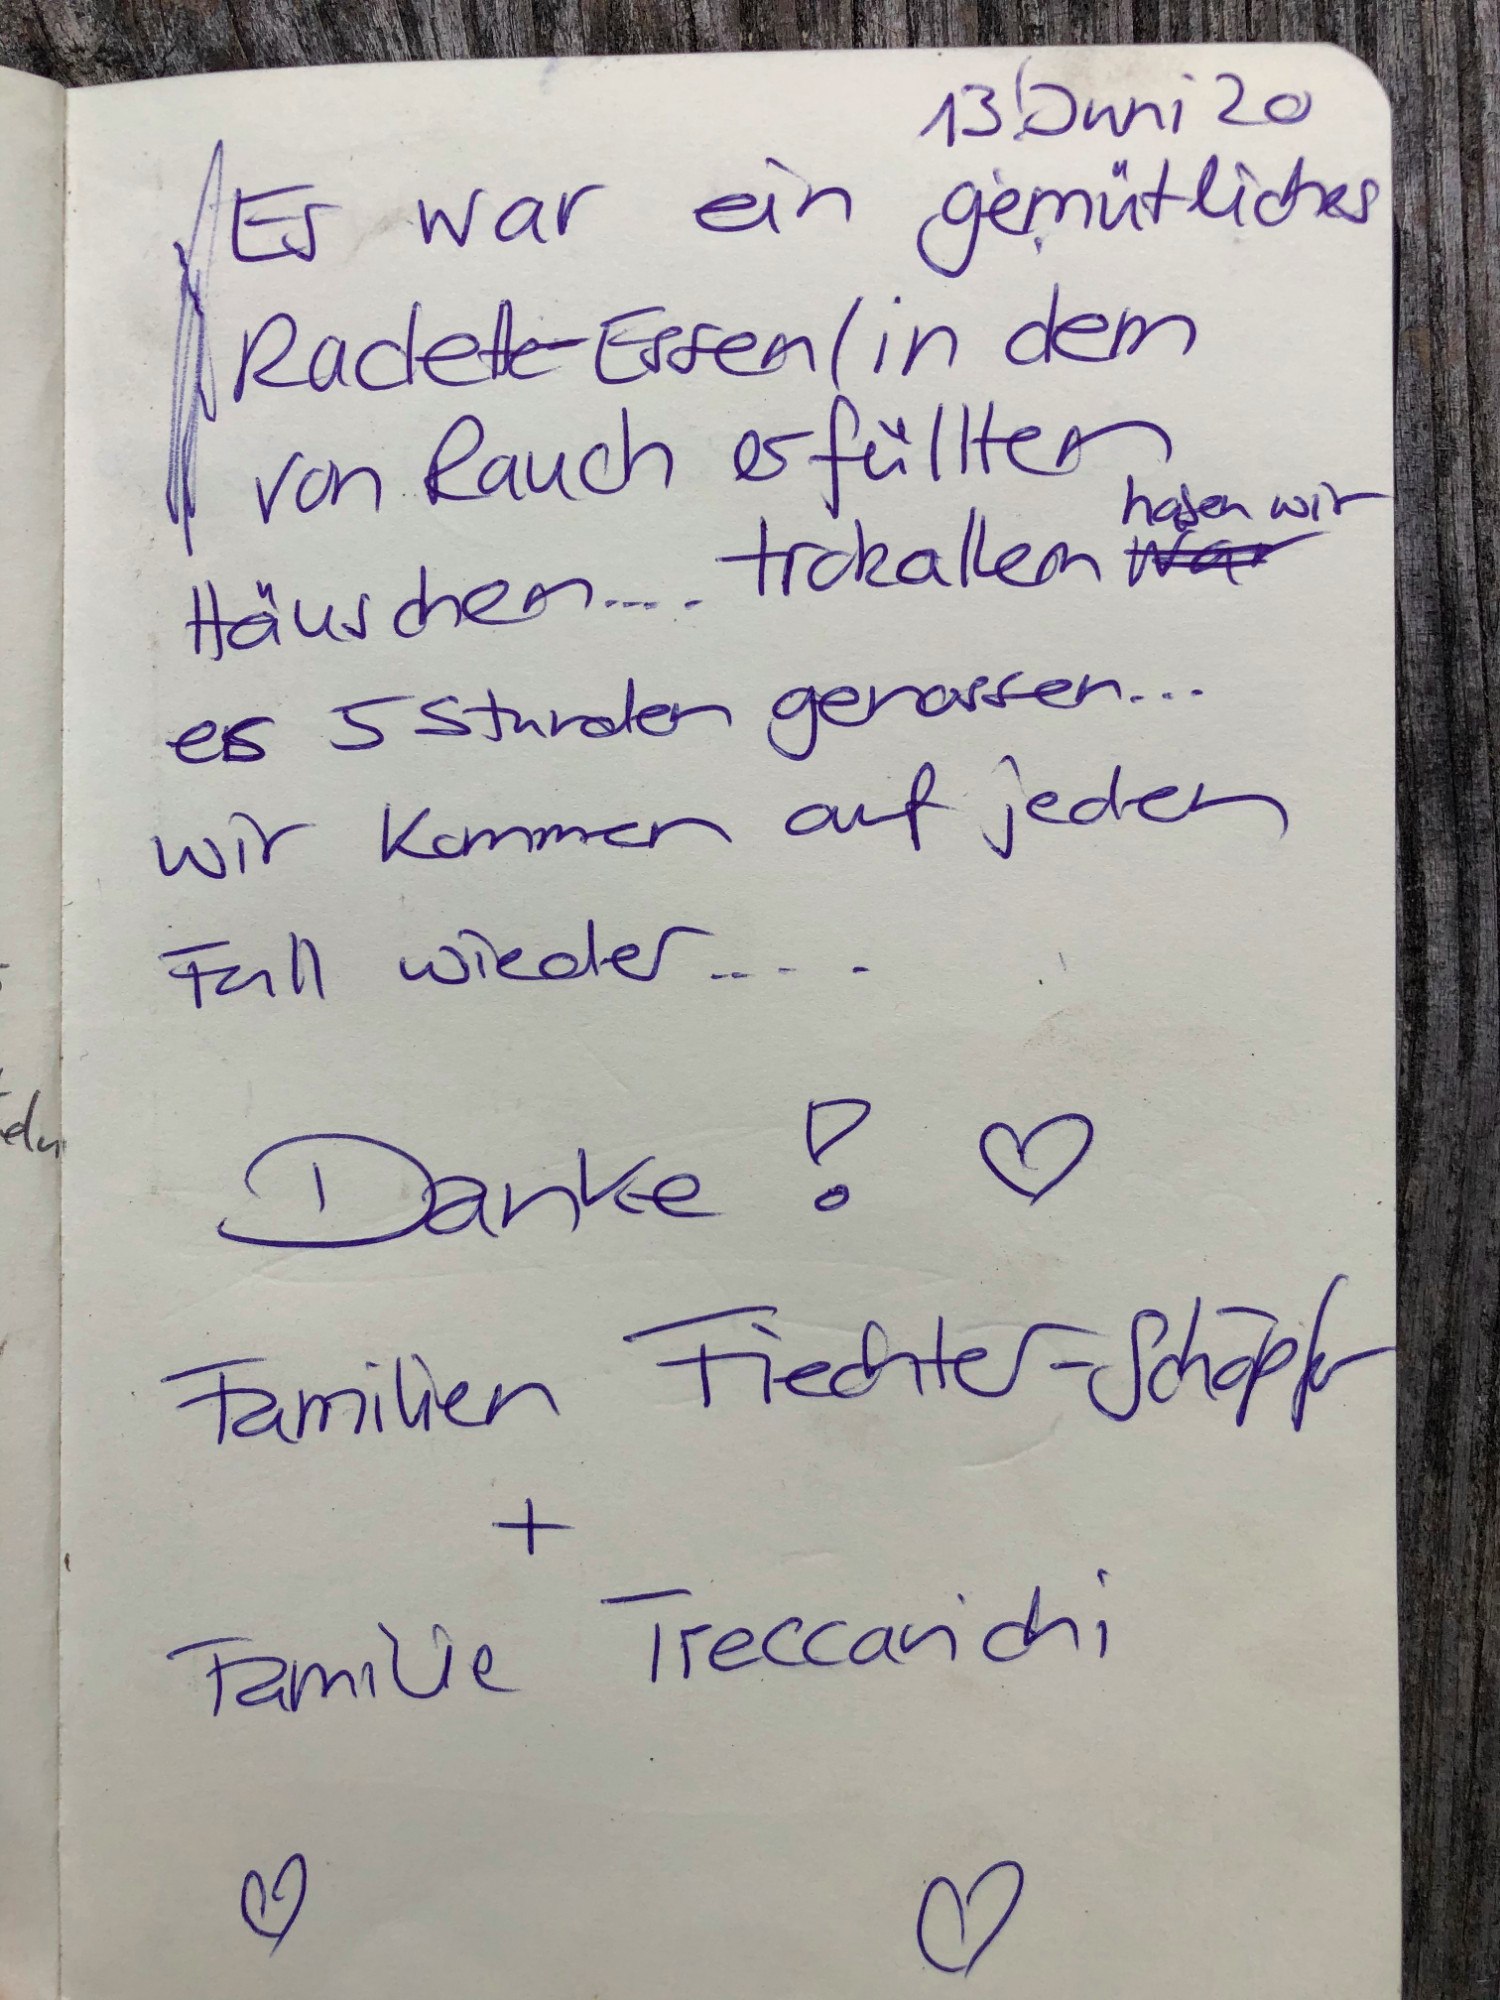 13. Juni 20
Es war ein gemütliches
Raclette-Essen (in dem
von Rauch erfüllten
Häuschen.... trotzallem haben wir
es 5 Stunden genossen...
wir kommen auf jeden
Fall wieder.....
Danke!
Familien Fiechter-Schöpfer
+
Familie Treccarichi